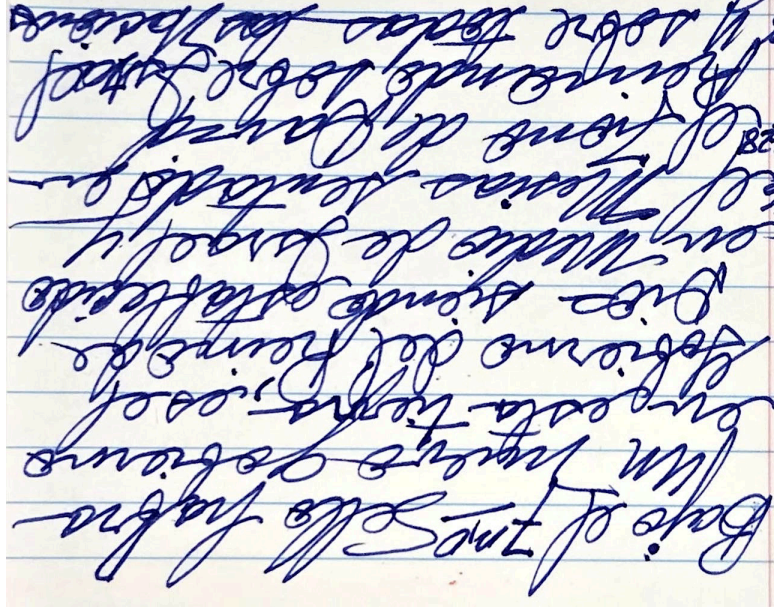 Bajo el 7mo Sello habra
un nuevo gobierno
en esta tierra, es el
Gobierno del Reino de
Dios siendo establecido
en Medio de Israel y
el Mesias sentado en
el trono de David
Reinando sobre Israel
y sobre todas las Naciones